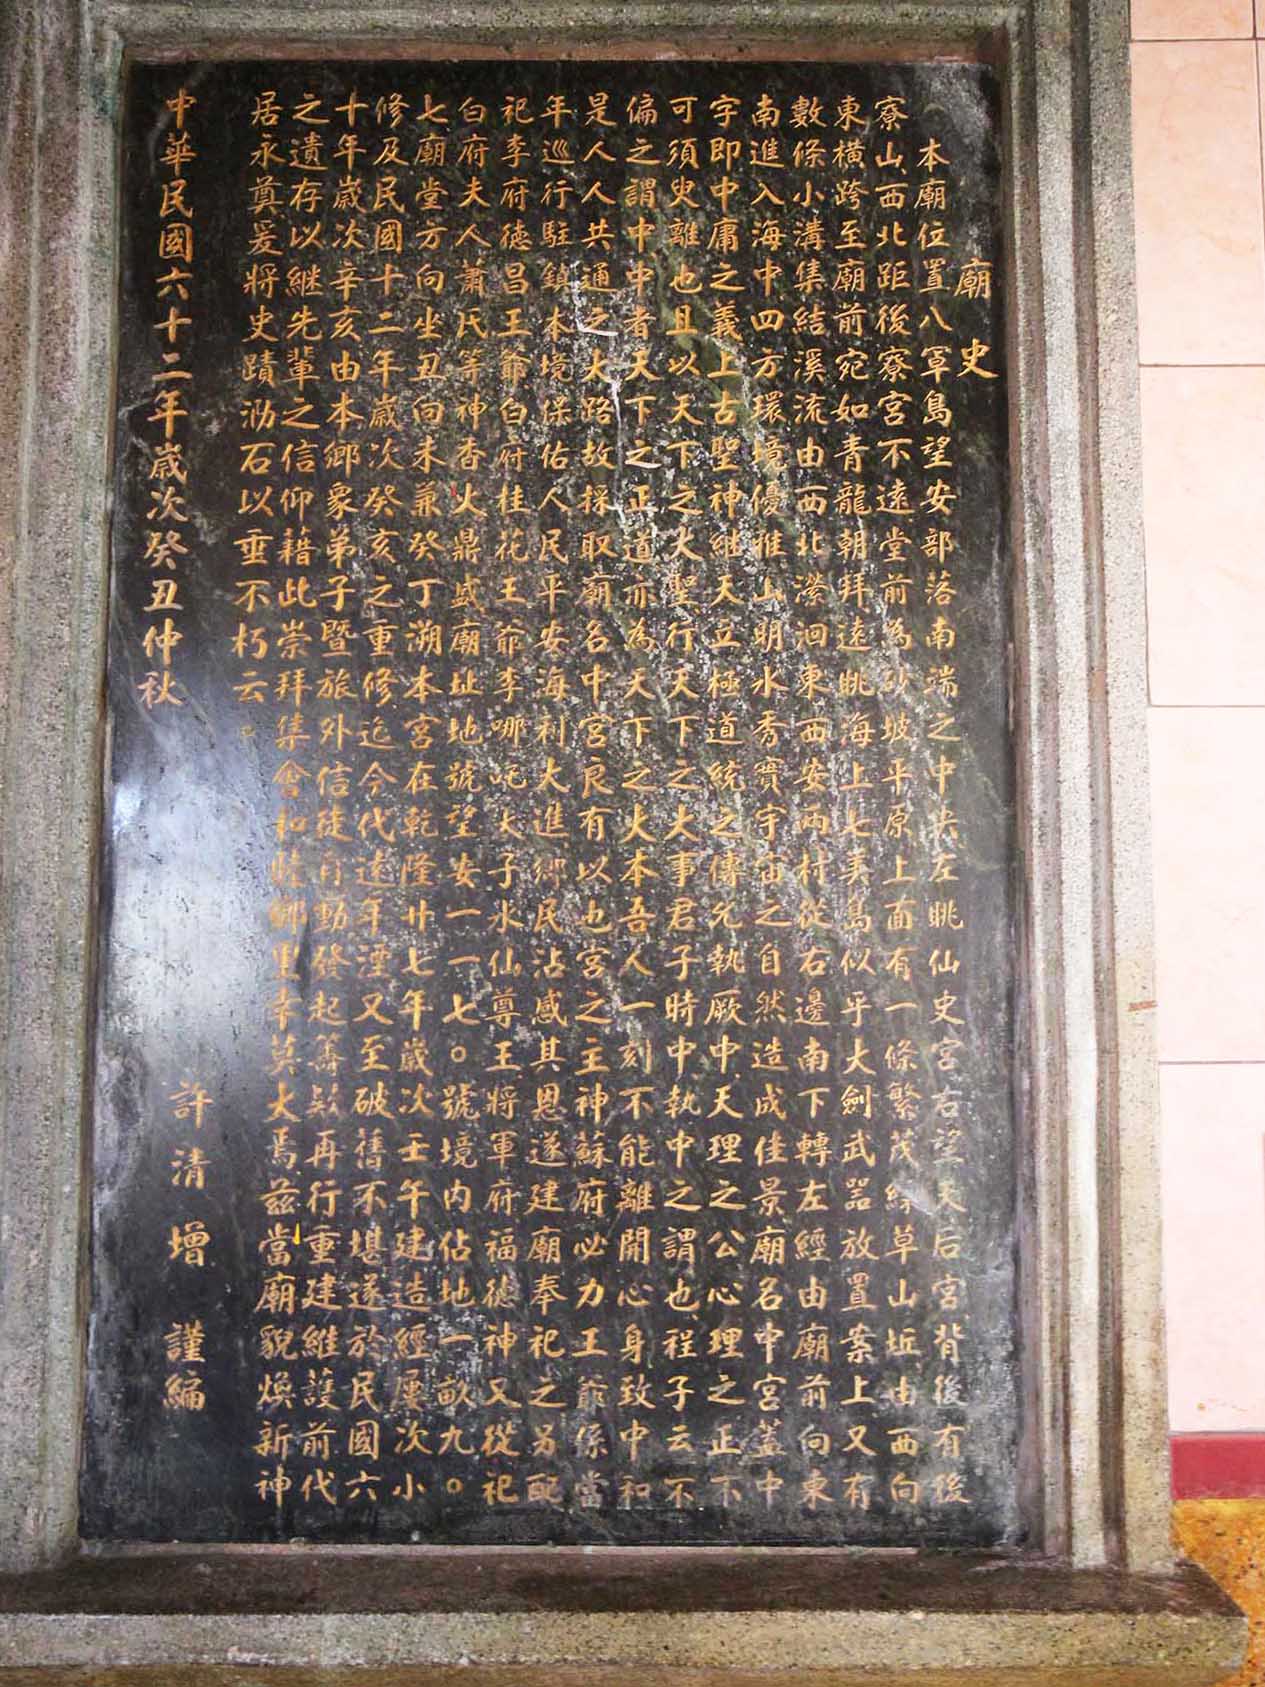 廟史
本廟位置八罩島望安部落南端之中央左眺仙史宮右望天后宮背後有後
寮山西北距後寮宮不遠堂前為砂坡平原上面有一條繁茂綠草山坵由西向
東橫跨至廟前宛如青龍朝拜遠眺海上七美島似乎大劍武器放置案上又有
數條小溝集結溪流由西北瀠洄東西安兩村從右邊南下轉左經由廟前向東
南進入海中四方環境優雅山明水秀實宇宙之自然造成佳景廟名中宮蓋中
字即中庸之義上古聖神継天立極道統之傳允執厥中天理之公心理之正不
可須臾離也且以天下之大聖行天下之大事君子時中執中之謂也程子云不
偏之謂中中者天下之正道亦為天下之大本吾人一刻不能離開心身致中和
是人人共通之大路故採取廟名中宮良有以也宮之主神蘇府必力王爺係當
年巡行駐鎮本境保佑人民平安海利大進鄉民沾感其恩遂建廟奉祀之另配
祀李府德昌王爺白府桂花王爺李哪吒太子水仙尊王將軍府福德神又從祀
白府夫人蕭氏等神杳火鼎盛廟址地號望安一一七○號境內佔地一畝九○
七廟堂方向坐丑向未兼癸丁溯本宮在乾隆廿七年歲次壬午建造經屢次小
修及民國十二年歲次癸亥之重修迄今代遠年湮又至破舊不堪遂於民國六
十年歲次辛亥由本鄉眾弟子暨旅外信徒自動發起籌款再行重建維護前代
之遺存以継先輩之信仰藉此崇拜集會和睦鄉里幸莫大焉茲當廟貌煥新神
居永奠爰將史蹟泐石以垂不朽云。
中華民國六十二年歲次癸丑仲秋 許清增 謹編